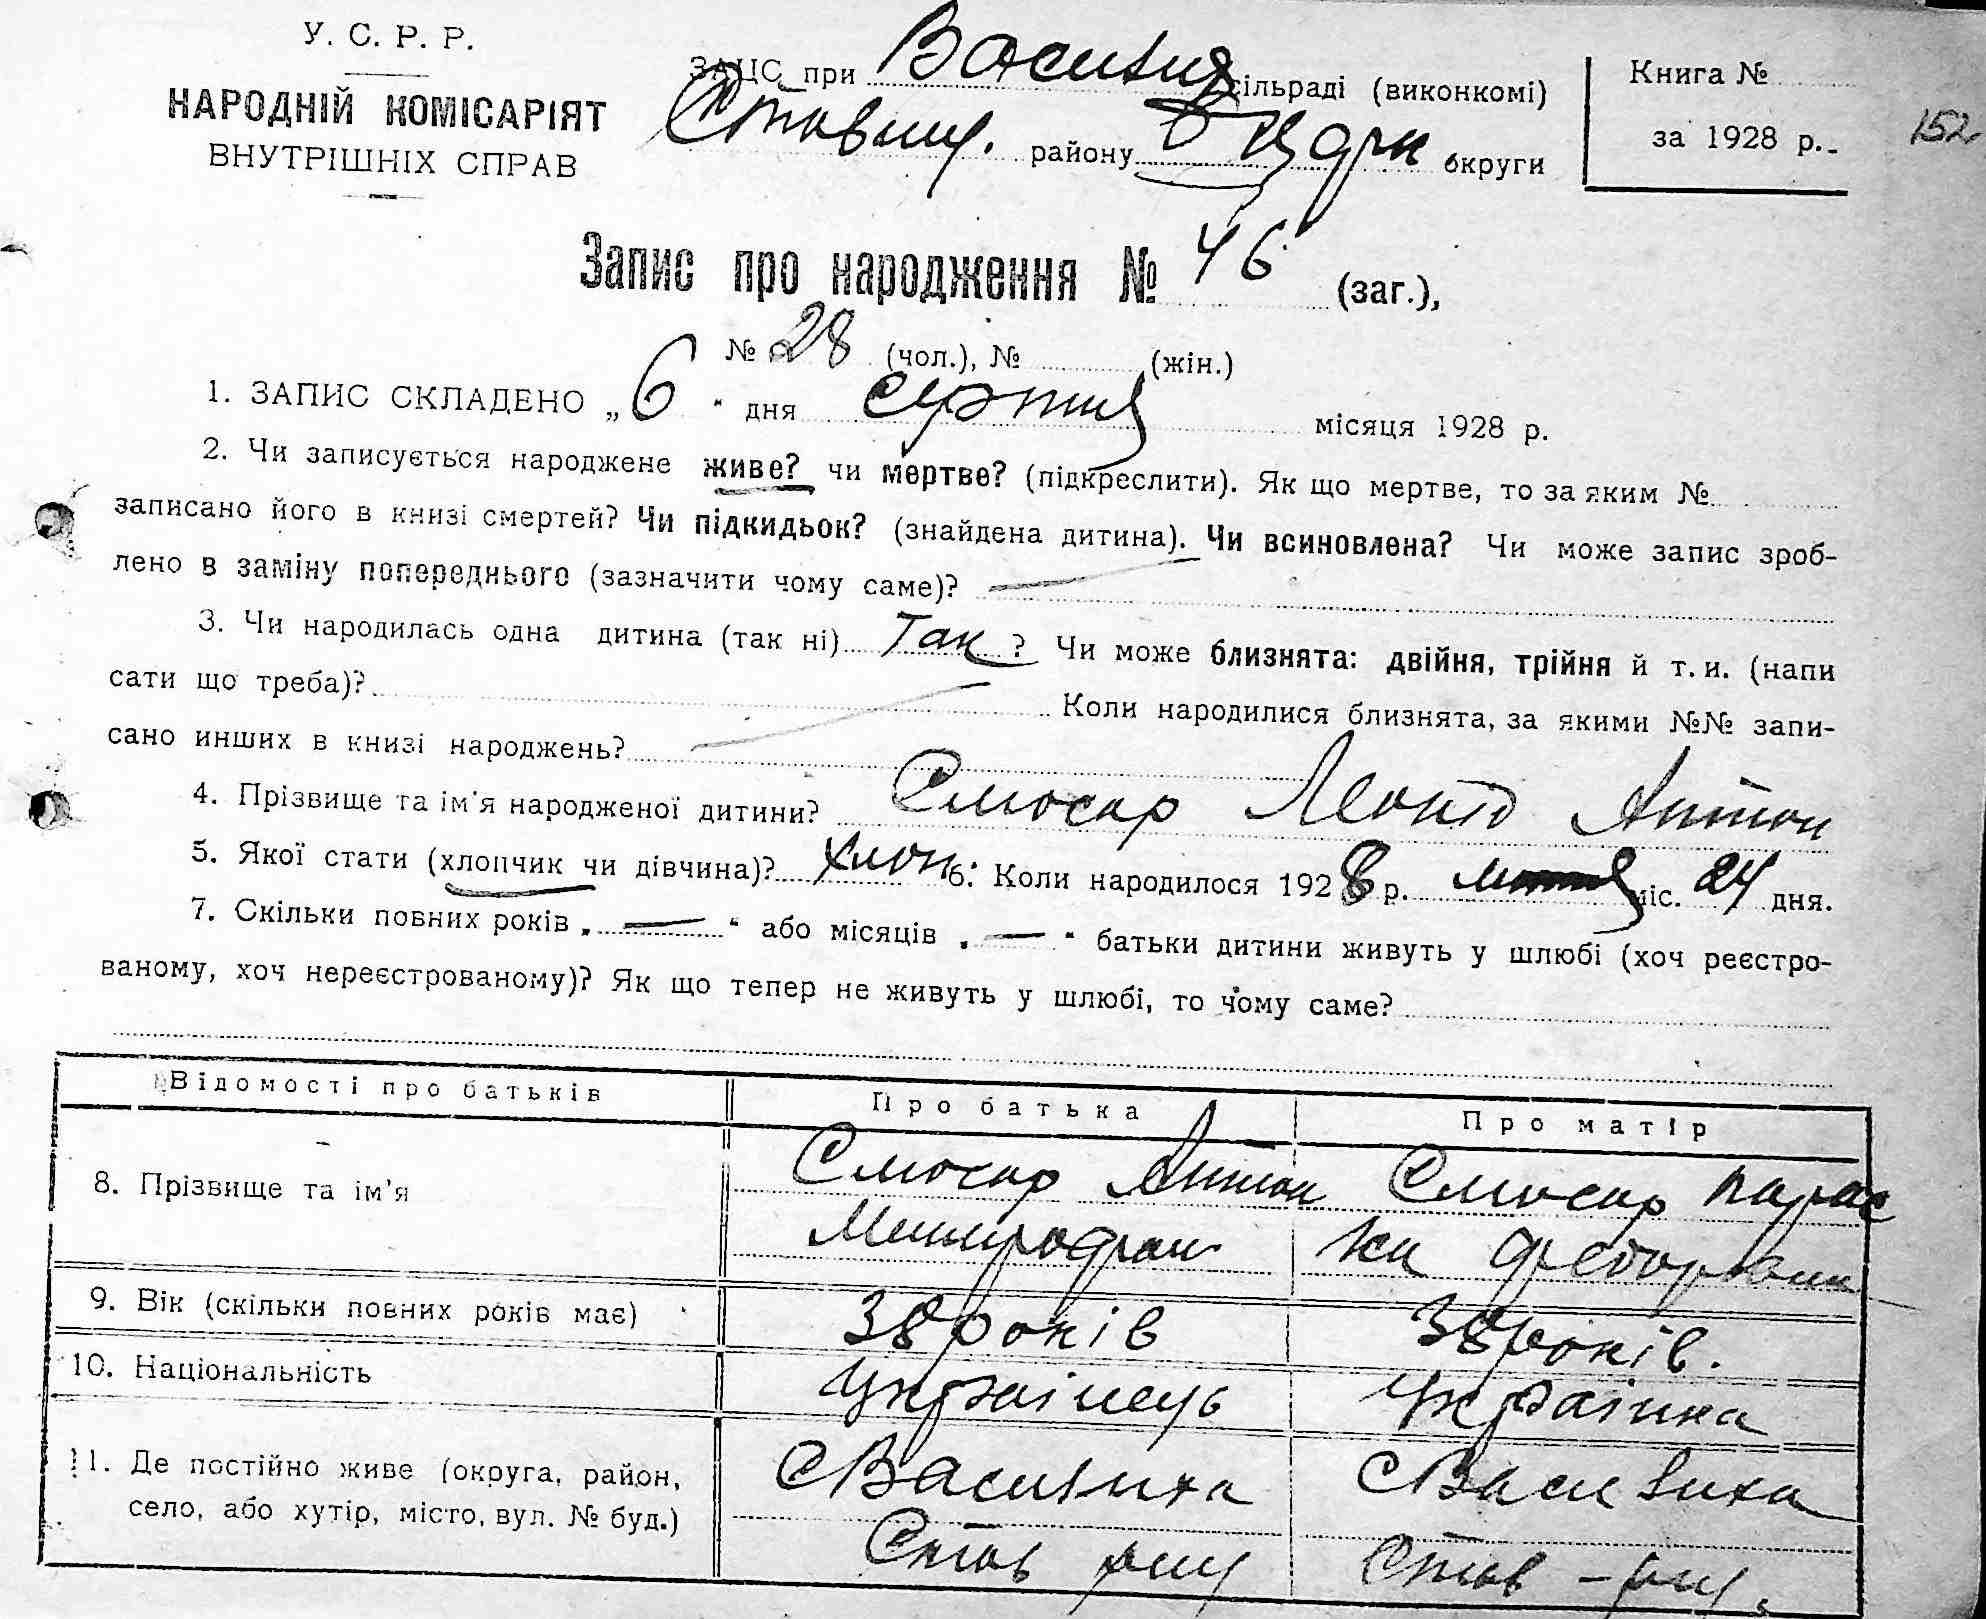 У. С. Р. Р.
НАРОДНІЙ КОМІСАРІЯТ
ВНУТРІШНІХ СПРАВ
ЗАЦС при сільраді (виконкомі)
Ставищ. району Б Церк округи
Книга №
за 1928 р.
152
Запис про народження № 46 (заг.),
№ 28 (чол.), № (жін.)
1. ЗАПИС СКЛАДЕНО „ 6 “ дня серпня місяця 1928 р.
2. Чи записується народжене живе? чи мертве? (підкреслити). Як що мертве, то за яким №
записано його в книзі смертей? Чи підкидьок? (знайдена дитина). Чи всиновлена? Чи може запис зроб-
лено в заміну попереднього (зазначити чому саме)? —
3. Чи народилась одна дитина (так ні) Так ? Чи може близнята: двійня, трійня й т. и. (напи
сати що треба)? Коли народилися близнята, за якими №№ запи-
сано инших в книзі народжень?
4. Прізвище та ім'я народженої дитини? Слюсар Антон
5. Якої стати (хлопчик чи дівчина)? хлоп 6. Коли народилося 1928 р. липня міс. 24 дня.
7. Скільки повних років „ — “ або місяців „ — “ батьки дитини живуть у шлюбі (хоч реєстро-
ваному, хоч нереєстрованому)? Як що тепер не живуть у шлюбі, то чому саме?
Відомості про батьків Про батька Про матір
8. Прізвище та ім'я Слюсар Антон Слюсар Парас
Митрофан ка Федоровна
9. Вік (скільки повних років має) 38 років 38 років.
10. Національність Українець Українка
11. Де постійно живе (округа, район, с Василиха с Василиха
село, або хутір, місто, вул. № буд.) Став рну Став - рну.